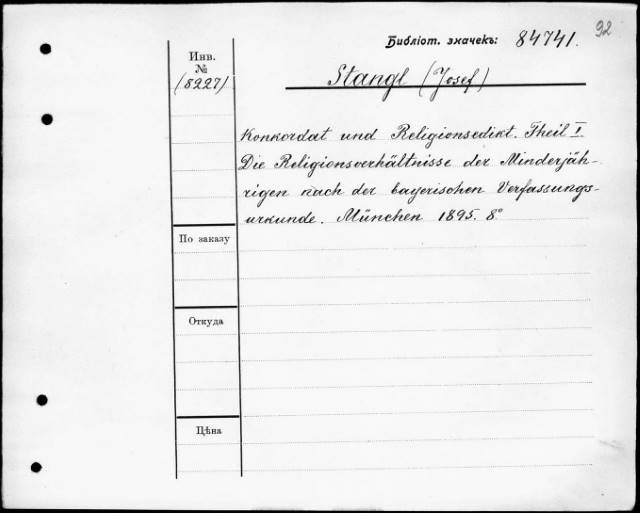 92
Библіот. значекъ: 84741.
Инв.
№
(8227)
Stangl (Josef)
Konkordat und Religionsedikt. Theil I.
Die Religionsverhältnisse der Minderjäh-
rigen nach der bayerischen Verfassungs-
urkunde. München 1895. 8°
По заказу
Откуда
Цѣна